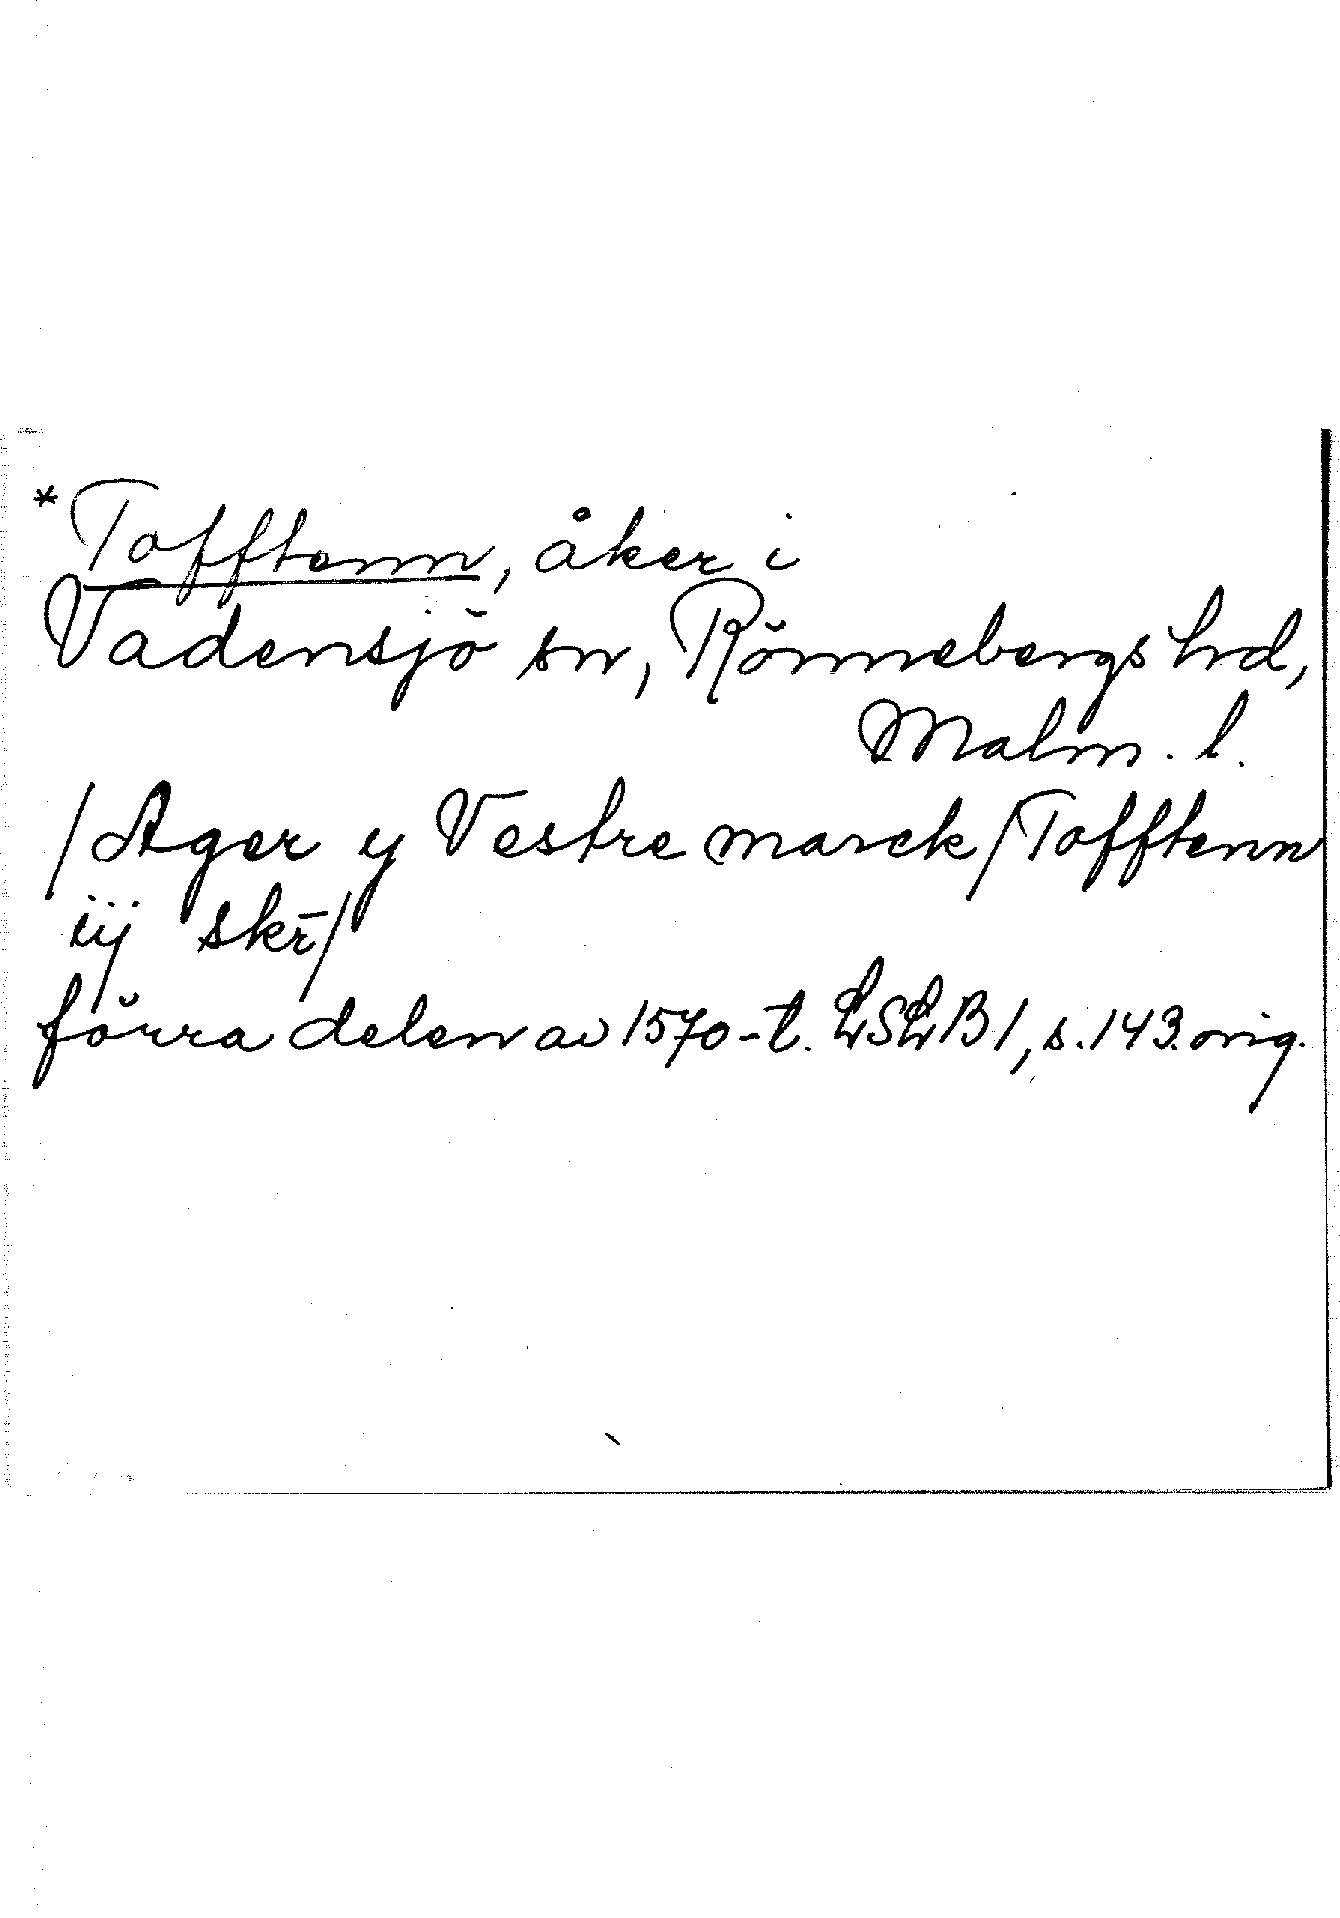 *Tofftenn, åker i
Vadensjö sn, Rönnebergs hrd,
Malm. l.
/Ager y Vestre marck/Tofftenn
iij skr̄/
förra delen av 1570-t. LSLB1, s. 143. orig.